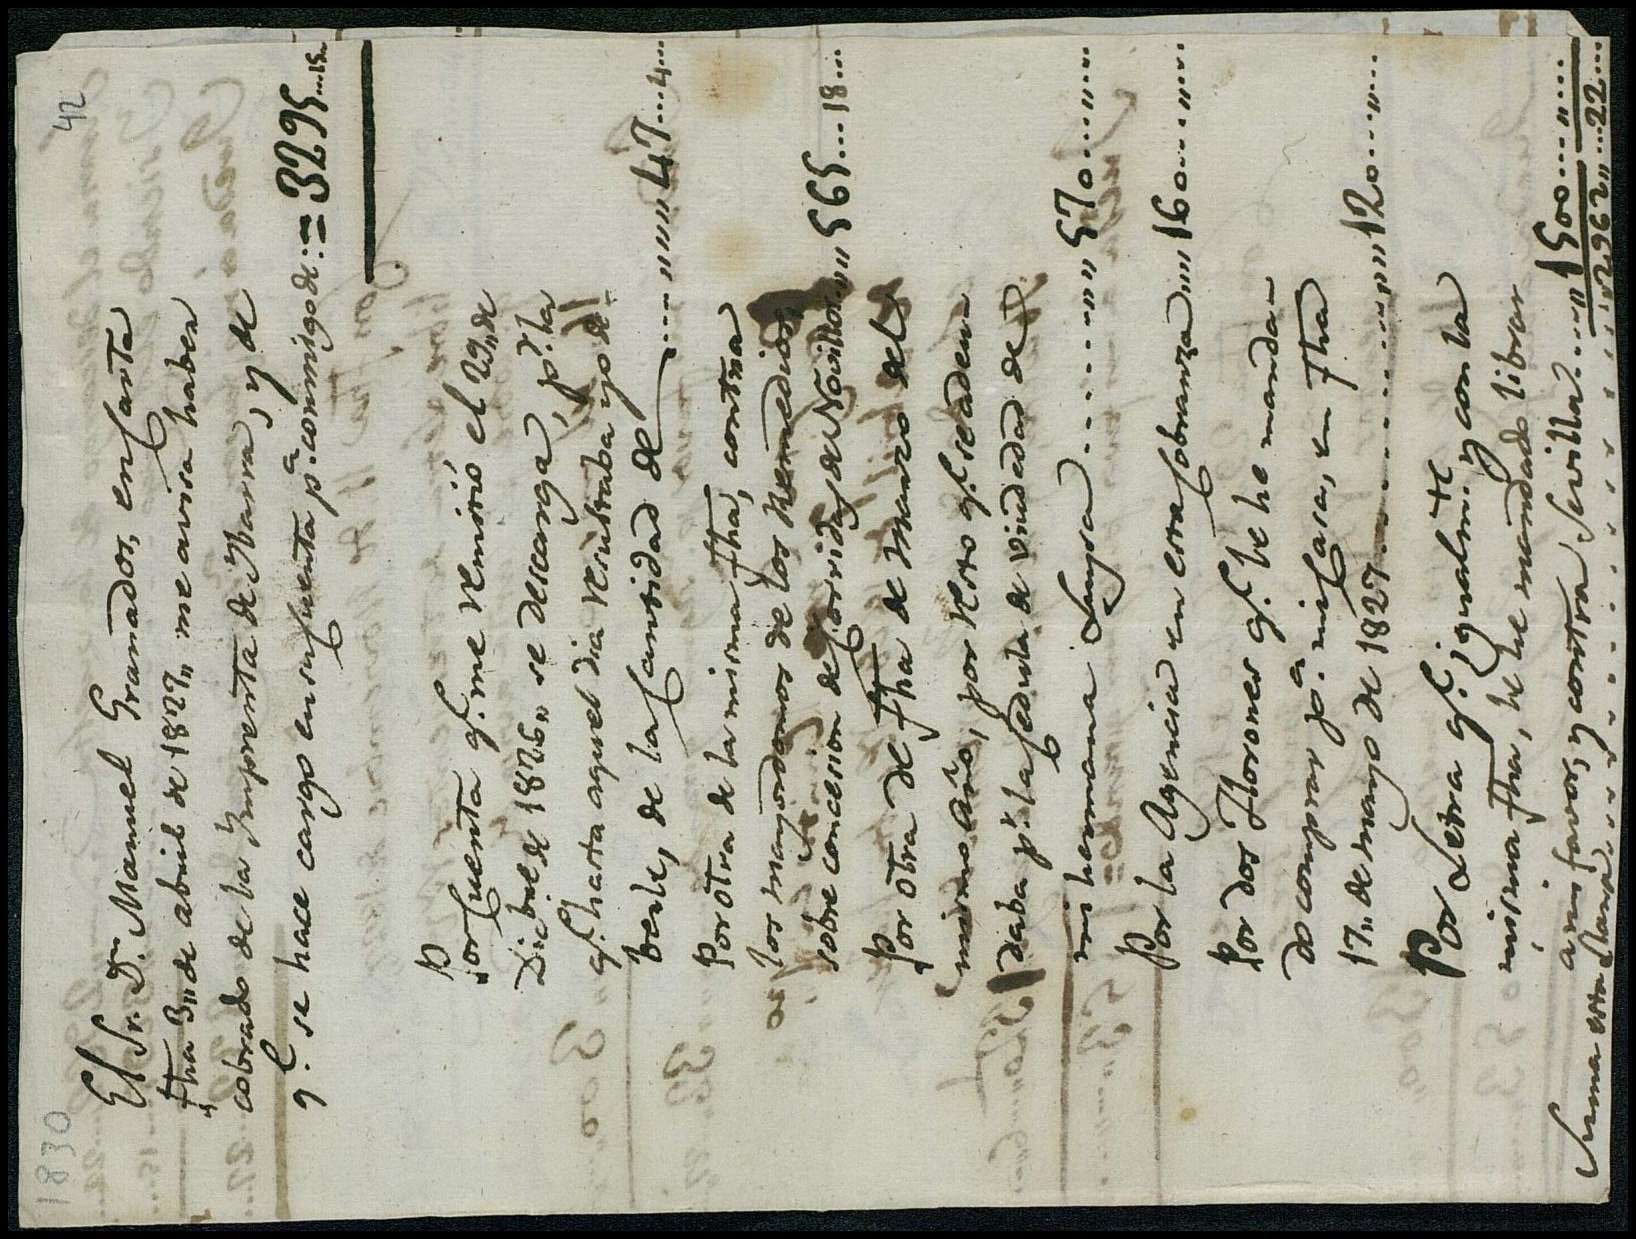 1830
42
El Sr. Dn. Manuel Granados, en Carta
fha 3,, de abril de 1827,, me avisa haber
cobrado de la Imprenta de Ybarra, y de
q.e se hace cargo en su Cuenta p.a conmigo de: = 3295....15...
Por Cuenta q.e me remitió el 29,, de
Dicbre de 1826,, se descarga, p.r la
q.e hasta aquel dia resultaba yo de-
berle, de la Cantidad de ..... 47....4...
Por otra de la misma fha, contra
los mayordomos de los Remedios
sobre concesion de Corridas de Novillos 565....18...
Por otra de fha de Marzo del
mismo año, por resto q.e se adeu
daba p.r la Cedula de viudedad de
mi hermana Luysa ........ 570......
Por la Agencia en esta Cobranza 160......
Por dos Florones q.e le he manda-
do comprar p.a mi Casa, en fha
17,, de mayo de 1827 ........ 120......
Por Letra q.e igualm.te y con la
misma fha, le he mandado librar
a mi favor, y contra Sevilla ..... 1500......
Suma esta Data ........ 2962....22...